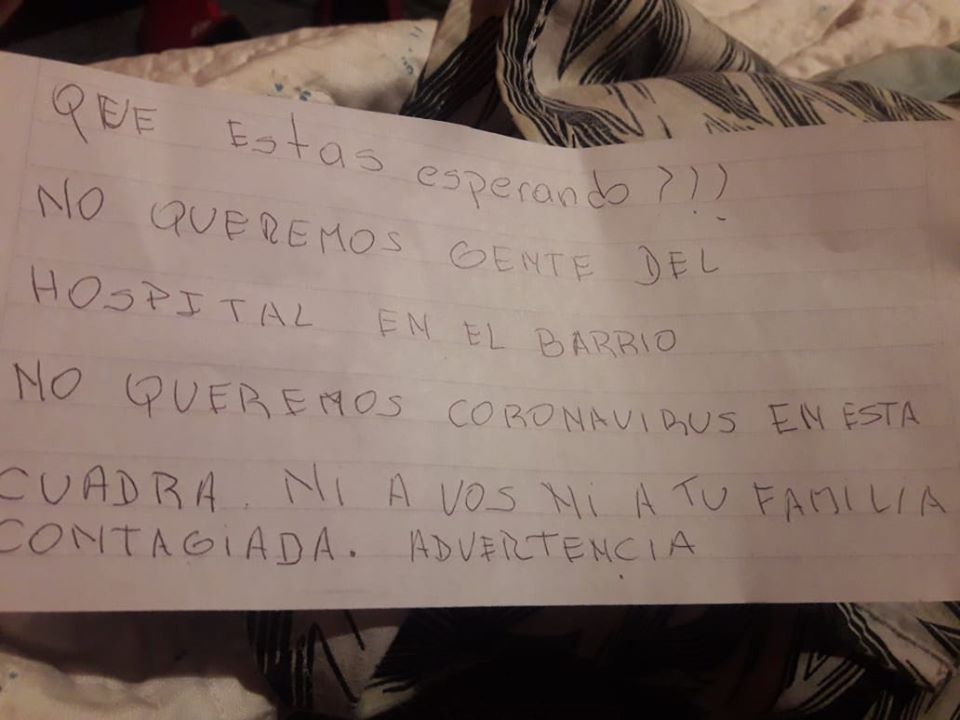 QUE Estas esperando?!!
NO QUEREMOS GENTE DEL
HOSPITAL EN EL BARRIO
NO QUEREMOS CORONAVIRUS EN ESTA
CUADRA. NI A VOS NI A TU FAMILIA
CONTAGIADA. ADVERTENCIA